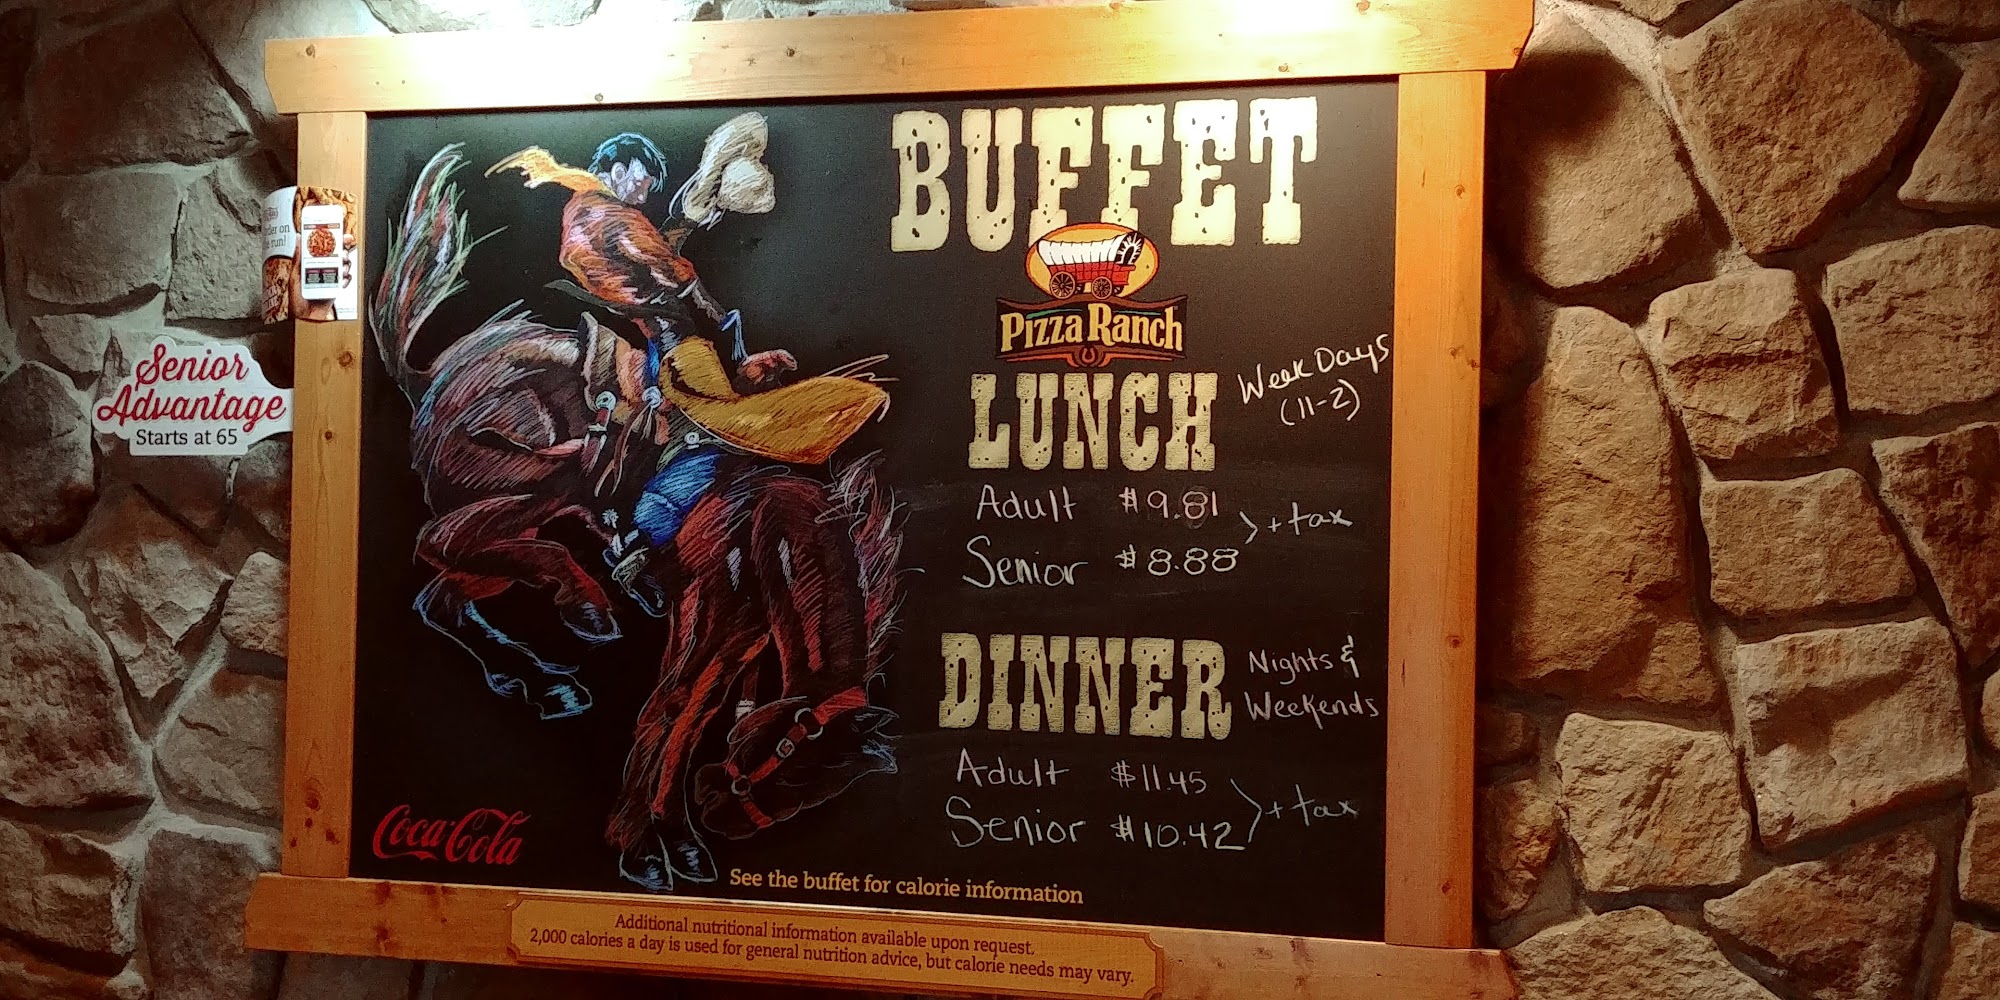 BUFFET
Pizza Ranch
LUNCH
Week Days
(11-2)
Adult $9.81
Senior $8.88
> + tax
DINNER
Nights &
Weekends
Adult $11.45
Senior $10.42
> + tax
Coca-Cola
See the buffet for calorie information
Additional nutritional information available upon request.
2,000 calories a day is used for general nutrition advice, but calorie needs may vary.
Senior
Advantage
Starts at 65
on
run!